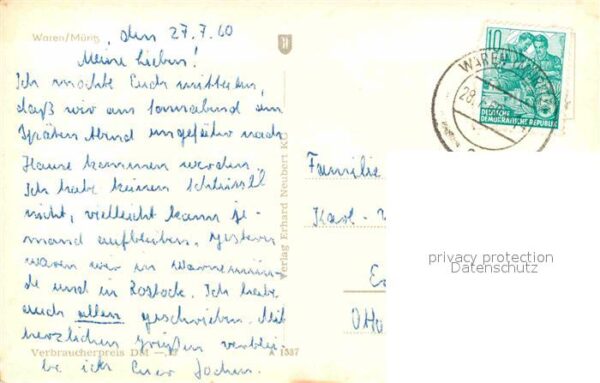 Waren/Müritz, den 27.7.60
Meine Lieben!
Ich möchte Euch mitteilen,
daß wir am Sonnabend am
späten Abend ungefähr nach
Hause kommen werden.
Ich habe keinen Schlüssel
nicht, vielleicht kann je-
mand aufbleiben. Gestern
waren wir in Warnemün-
de und in Rostock. Ich habe
auch allen geschrieben. Mit
herzlichen Grüßen verblei-
be ich Euer Jochen.
Verbraucherpreis DM
A 1587
Verlag Erhard Neubert KG
10
DEUTSCHE
DEMOKRATISCHE REPUBLIK
WAREN
28.
Familie
Karl-
Otto
privacy protection
Datenschutz